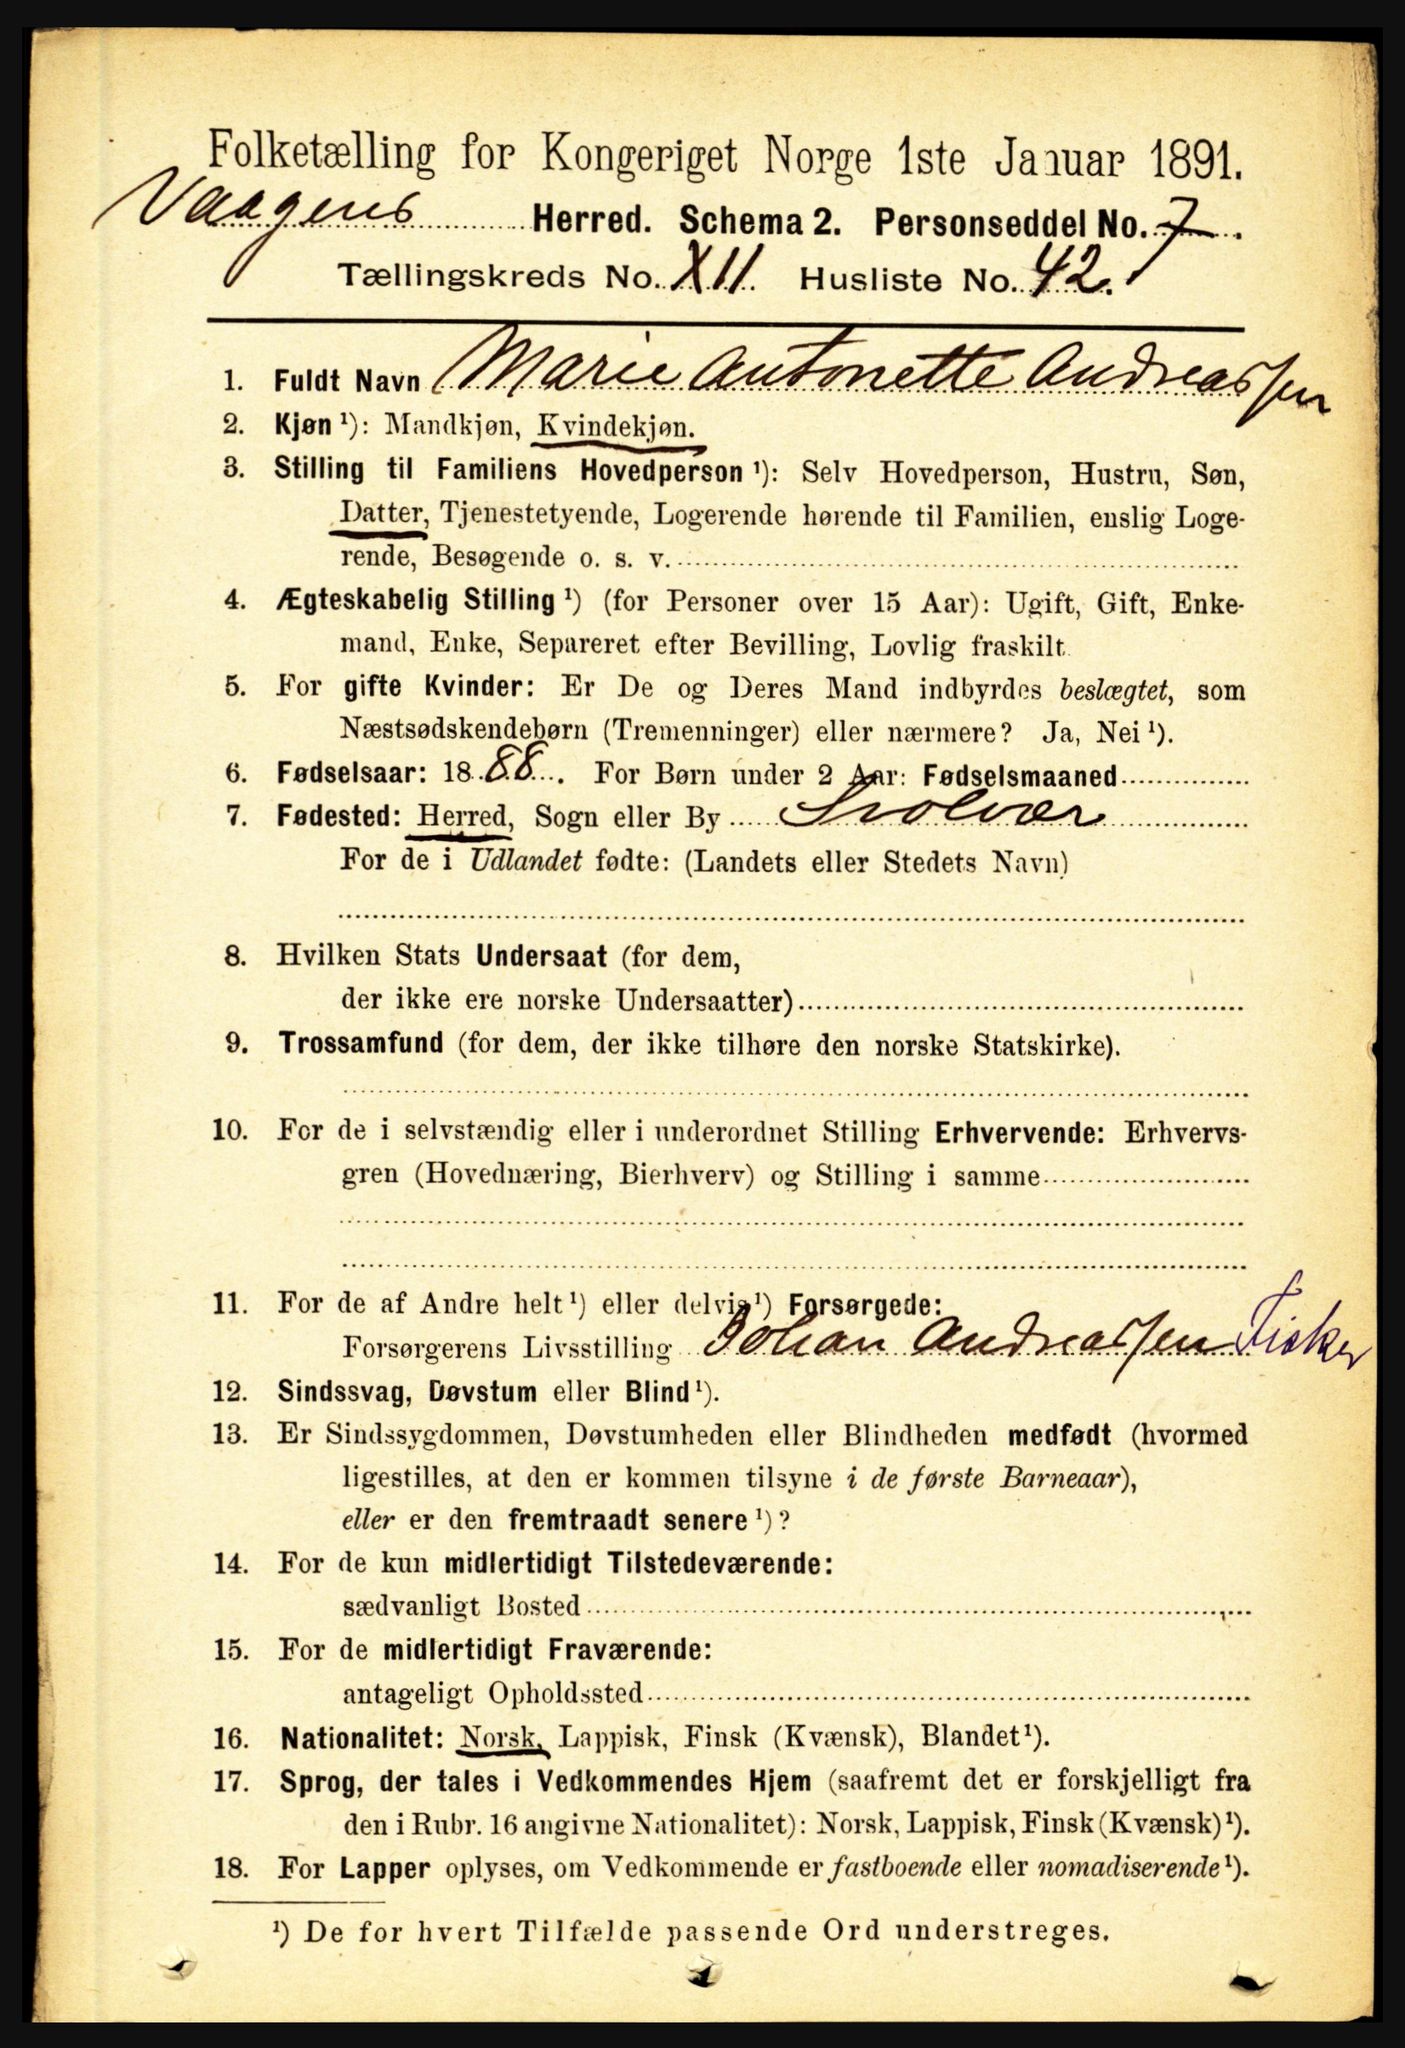 Folketælling for Kongeriget Norge 1ste Januar 1891.
Vaagens Herred. Schema 2. Personseddel No. 7.
Tællingskreds No. XII Husliste No. 42.
1. Fuldt Navn Marie Antonette Andreassen
2. Kjøn ¹): Mandkjøn, Kvindekjøn.
3. Stilling til Familiens Hovedperson ¹): Selv Hovedperson, Hustru, Søn,
Datter, Tjenestetyende, Logerende hørende til Familien, enslig Loge-
rende, Besøgende o. s. v.
4. Ægteskabelig Stilling ¹) (for Personer over 15 Aar): Ugift, Gift, Enke-
mand, Enke, Separeret efter Bevilling, Lovlig fraskilt
5. For gifte Kvinder: Er De og Deres Mand indbyrdes beslægtet, som
Næstsødskendebørn (Tremenninger) eller nærmere? Ja, Nei ¹).
6. Fødselsaar: 1888. For Børn under 2 Aar: Fødselsmaaned
7. Fødested: Herred, Sogn eller By Svolvær
For de i Udlandet fødte: (Landets eller Stedets Navn)
8. Hvilken Stats Undersaat (for dem,
der ikke ere norske Undersaatter)
9. Trossamfund (for dem, der ikke tilhøre den norske Statskirke).
10. For de i selvstændig eller i underordnet Stilling Erhvervende: Erhvervs-
gren (Hovednæring, Bierhverv) og Stilling i samme
11. For de af Andre helt ¹) eller delvis ¹) Forsørgede:
Forsørgerens Livsstilling Johan Andreassen Fisker
12. Sindssvag, Døvstum eller Blind ¹).
13. Er Sindssygdommen, Døvstumheden eller Blindheden medfødt (hvormed
ligestilles, at den er kommen tilsyne i de første Barneaar),
eller er den fremtraadt senere ¹)?
14. For de kun midlertidigt Tilstedeværende:
sædvanligt Bosted
15. For de midlertidigt Fraværende:
antageligt Opholdssted
16. Nationalitet: Norsk, Lappisk, Finsk (Kvænsk), Blandet ¹).
17. Sprog, der tales i Vedkommendes Hjem (saafremt det er forskjelligt fra
den i Rubr. 16 angivne Nationalitet): Norsk, Lappisk, Finsk (Kvænsk) ¹).
18. For Lapper oplyses, om Vedkommende er fastboende eller nomadiserende ¹).
¹) De for hvert Tilfælde passende Ord understreges.